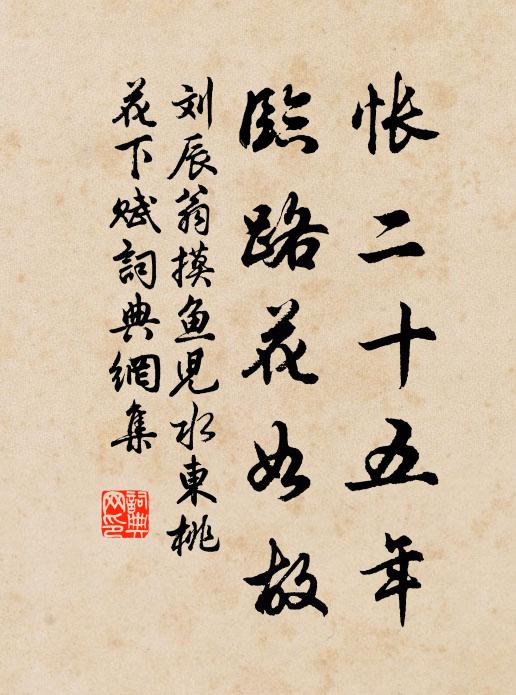 怅二十五年
臨路花如故
刘辰翁摸魚児水東桃
花下赋詞典網集
詞典
网印